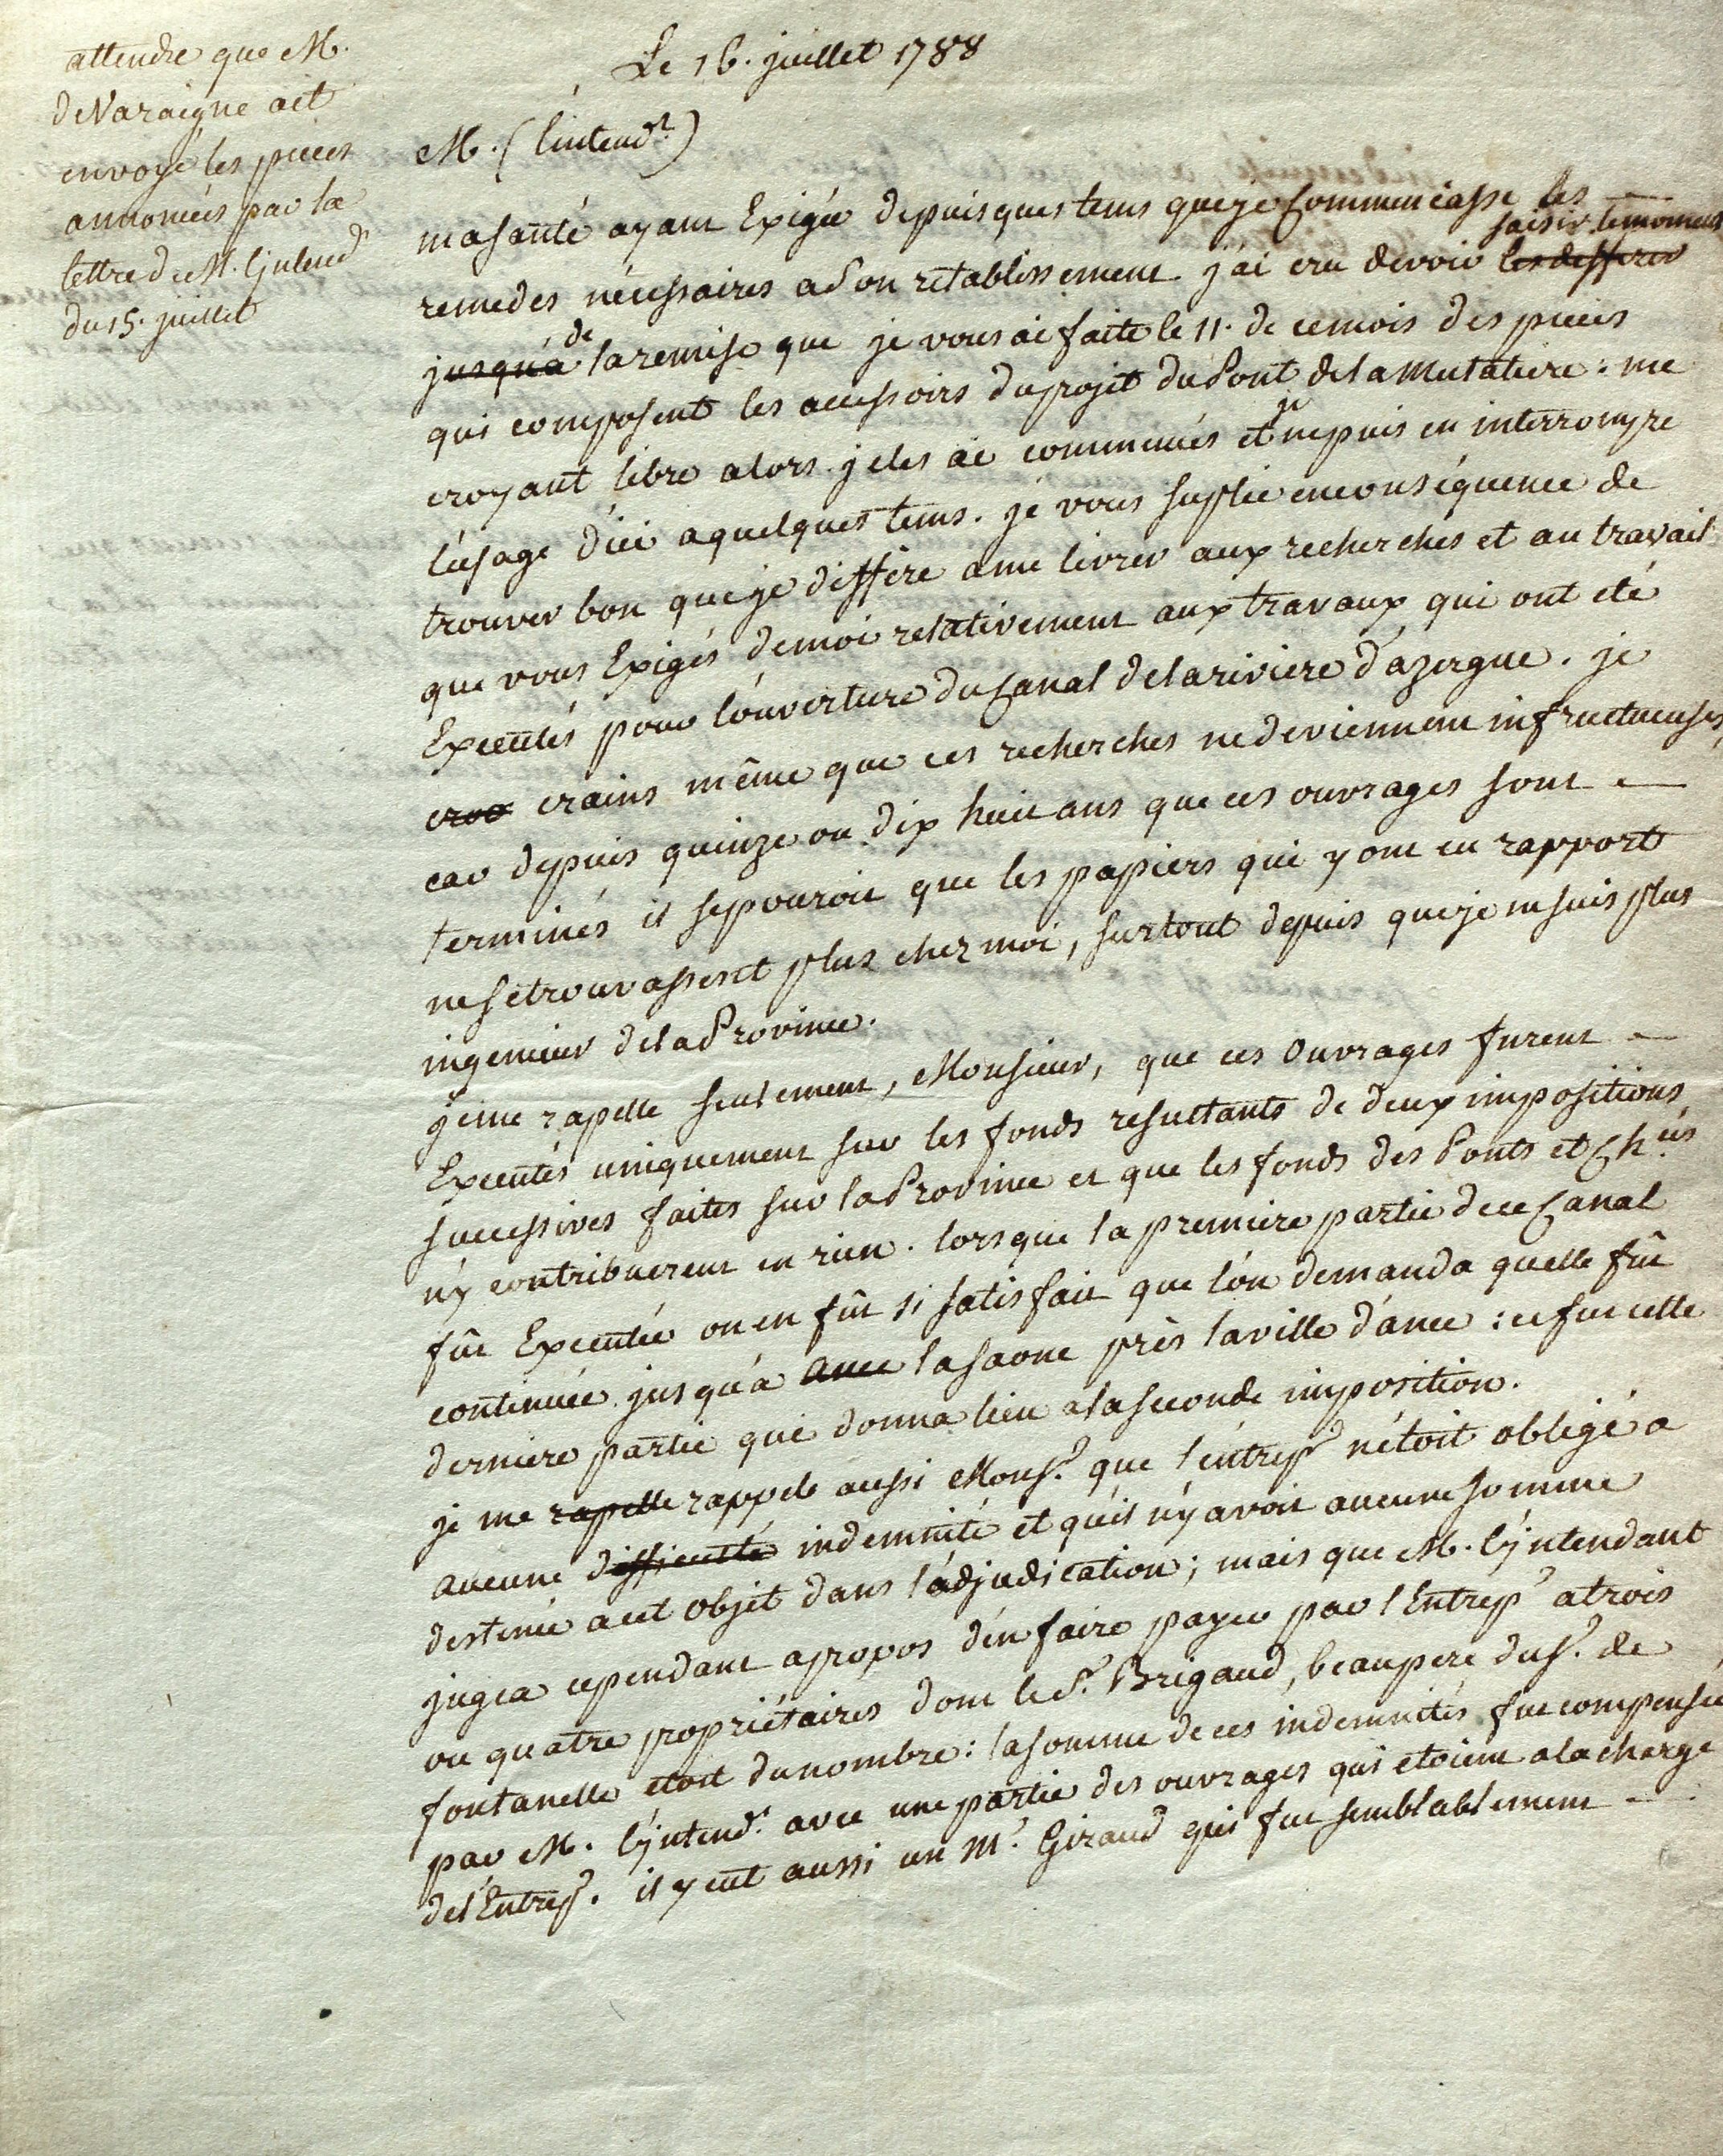 attendre que M.
de Varaigne ait
envoyé les pieces
annoncées par la
lettre de M. l'jntend.t
du 15. juillet
Le 16. juillet 1788
M. (l'intend.t)
ma santé ayant Exigée depuis ques tems que je Commençasse les
saisir le moment
remedes nécessaires a son rétablissement. j'ai cru devoir les defferer
jusqu'a de la remise que je vous ai faite le 11. de ce mois des pieces
qui composent les accessoirs du projet du Pont de la mulatiere : me
croyant libre alors. je les ai commencés et je ne puis en interrompre
l'usage d'ici a quelques tems. je vous suplie en conséquence de
trouver bon que je differe a me livrer aux recherches et au travail
que vous Exigés de moi relativement aux travaux qui ont eté
Executés pour l'ouverture du Canal de la riviere d'azergue. je
croo crains même que ces recherches ne deviennent infructueuses,
car depuis quinze ou dix huit ans que ces ouvrages sont
terminés il se pouroit que les papiers qui y ont eu rapport
ne se trouvassent plus chez moi, surtout depuis que je ne suis plus
ingenieur de la Province.
je me rapelle seulement, Monsieur, que ces Ouvrages furent
Executés uniquement sur les fonds resultants de deux impositions
successives faites sur la Province et que les fonds des Ponts et Ch.ées
n'y contribuerent en rien. lorsque la premiere partie de ce Canal
fût Executée on en fût si satisfait que l'on demanda quelle fût
continuée jusqu'a ance la saone près la ville d'ance : ce fut cette
derniere partie qui donna lieu a la seconde imposition.
je me rapelle rappele aussi Mons.r que l'entrep.r n'étoit obligé a
aucune difficulté indemnité et qu'il n'y avoit aucune somme
destinée a cet objet dans l'adjudication ; mais que M. l'jntendant
jugea cependant apropos d'en faire payer par l'Entrep.r a trois
ou quatre propriétaires dont le S.r Brigaud, beaupere du s.r de
fontanelle etoit du nombre : la somme de ces indemnités fut compensée
par M. l'jntend.t avec une partie des ouvrages qui etoient a la charge
de l'Entrep.r il y eut aussi un M.r Giraud qui fut semblablement